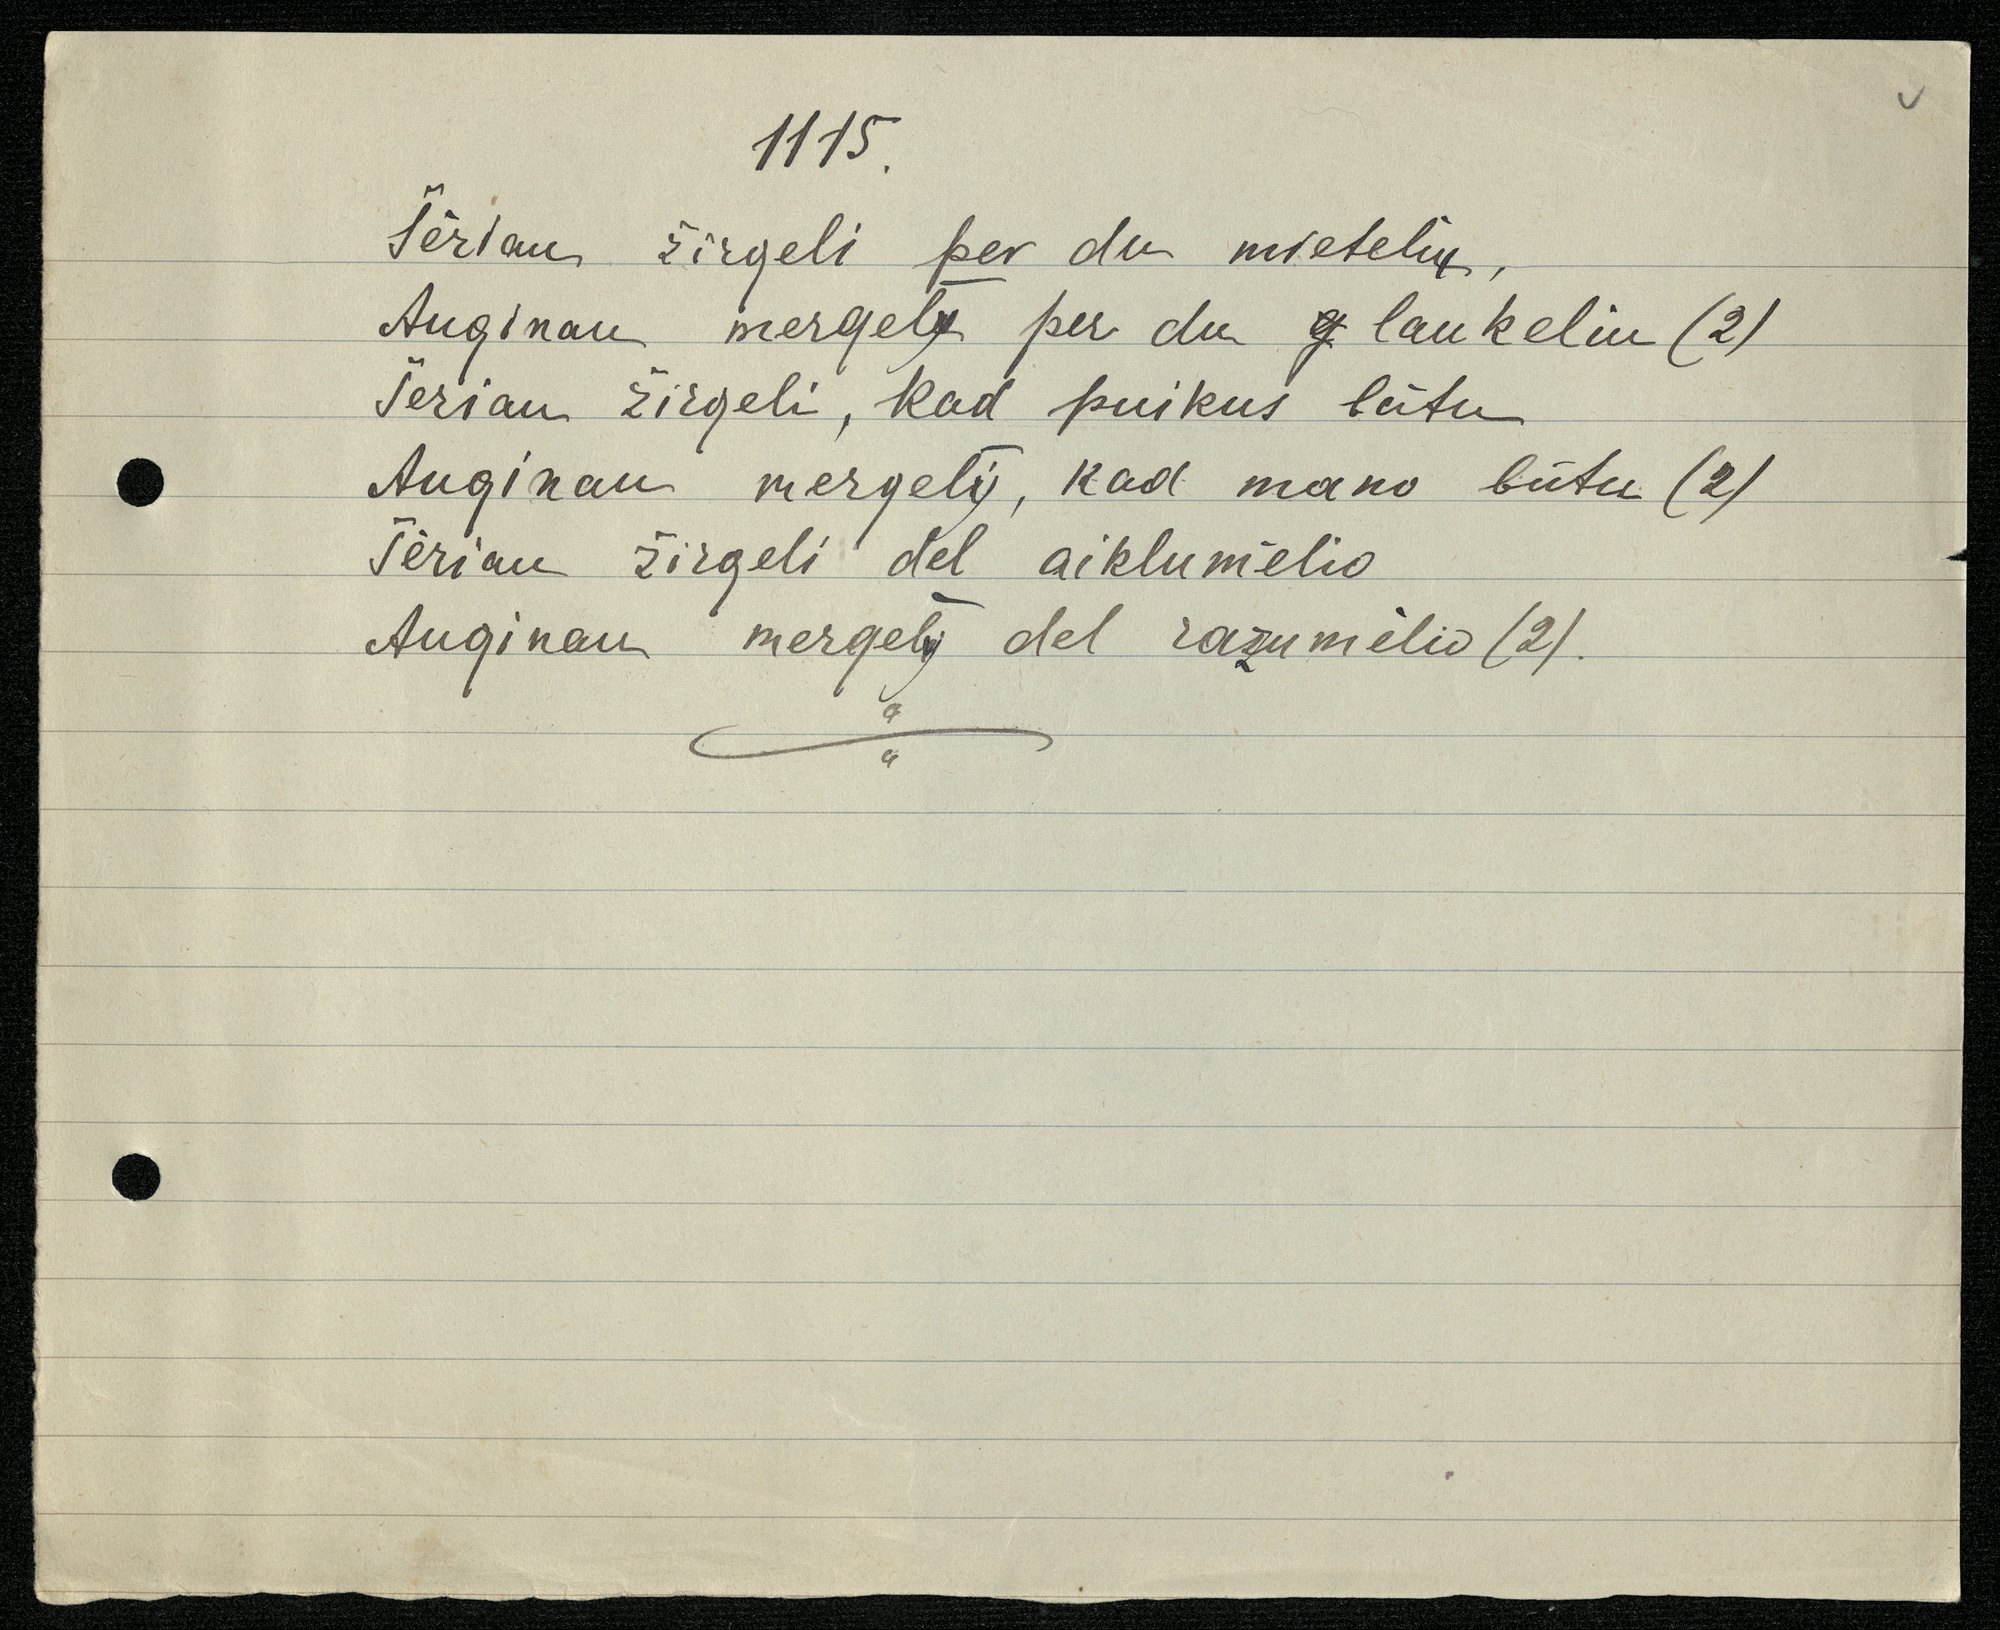 1115.
Šėriau žirgeli per du mieteliu,
Auginau mergelę per du laukeliu (2)
Šeriau žirgeli, kad puikus būtu
Auginau mergelę, kad mano būtu (2)
Šėriau žirgeli del aiklumėlio
Auginau mergelę del razumėlio (2).